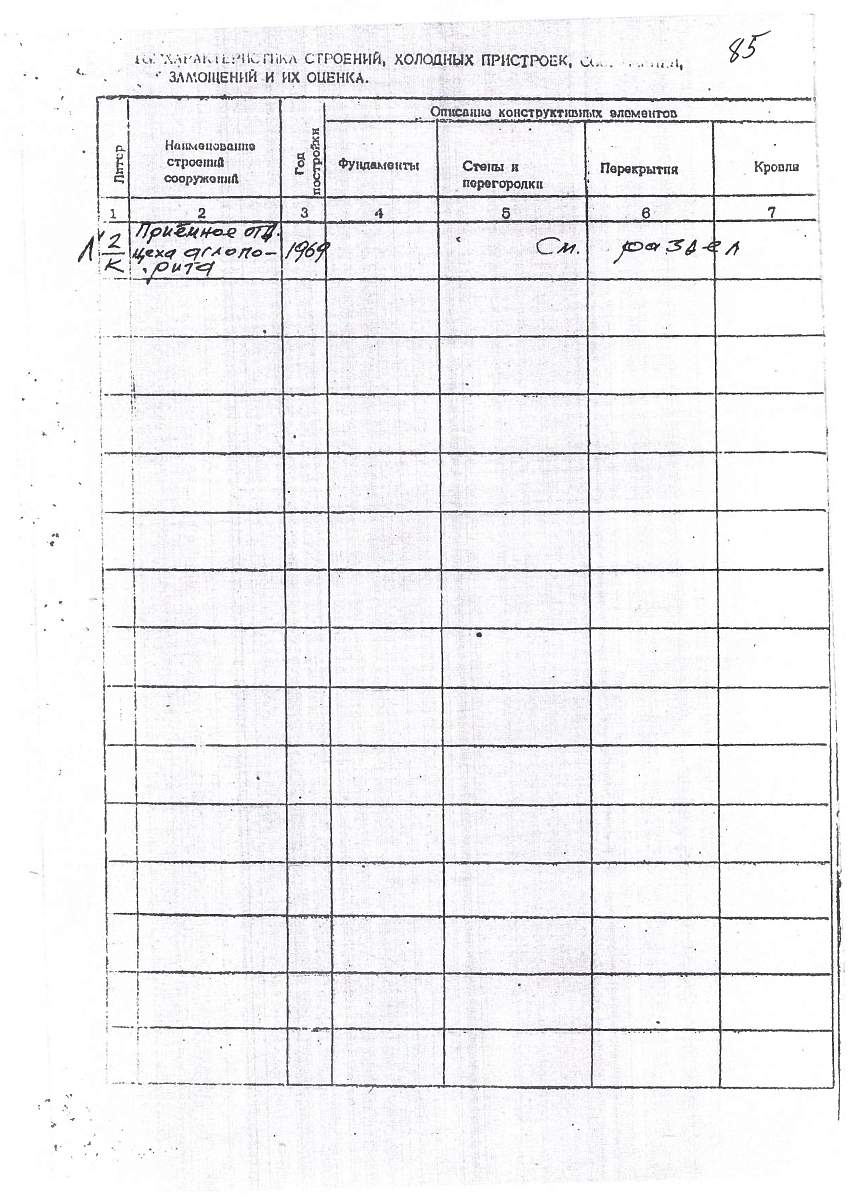 85
ХАРАКТЕРИСТИКА СТРОЕНИЙ, ХОЛОДНЫХ ПРИСТРОЕК,
ЗАМОЩЕНИЙ И ИХ ОЦЕНКА.
Литер
Наименование
строений
сооружений
Год
постройки
Описание конструктивных элементов
Фундаменты
Стены и
перегородки
Перекрытия
Кровля
1 2 3 4 5 6 7
Л 2/К
Приёмное отд.
цеха аглопо-
рита
1969
См. раздел